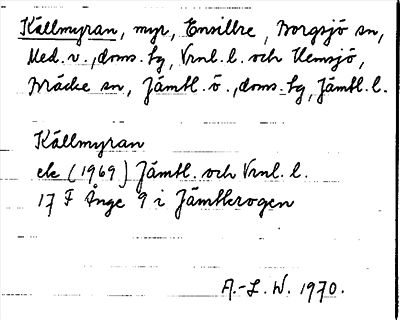 Källmyran, myr, Ensillre, Borgsjö sn,
Med. v., doms. hg, Vrnl. l. och Hemsjö,
Bräcke sn, Jämtl. ö., doms. hg, Jämtl. l.
Källmyran
ek (1969) Jämtl. och Vrnl. l.
17 F Ånge 9 i Jämtkrogen
A.-L. W. 1970.